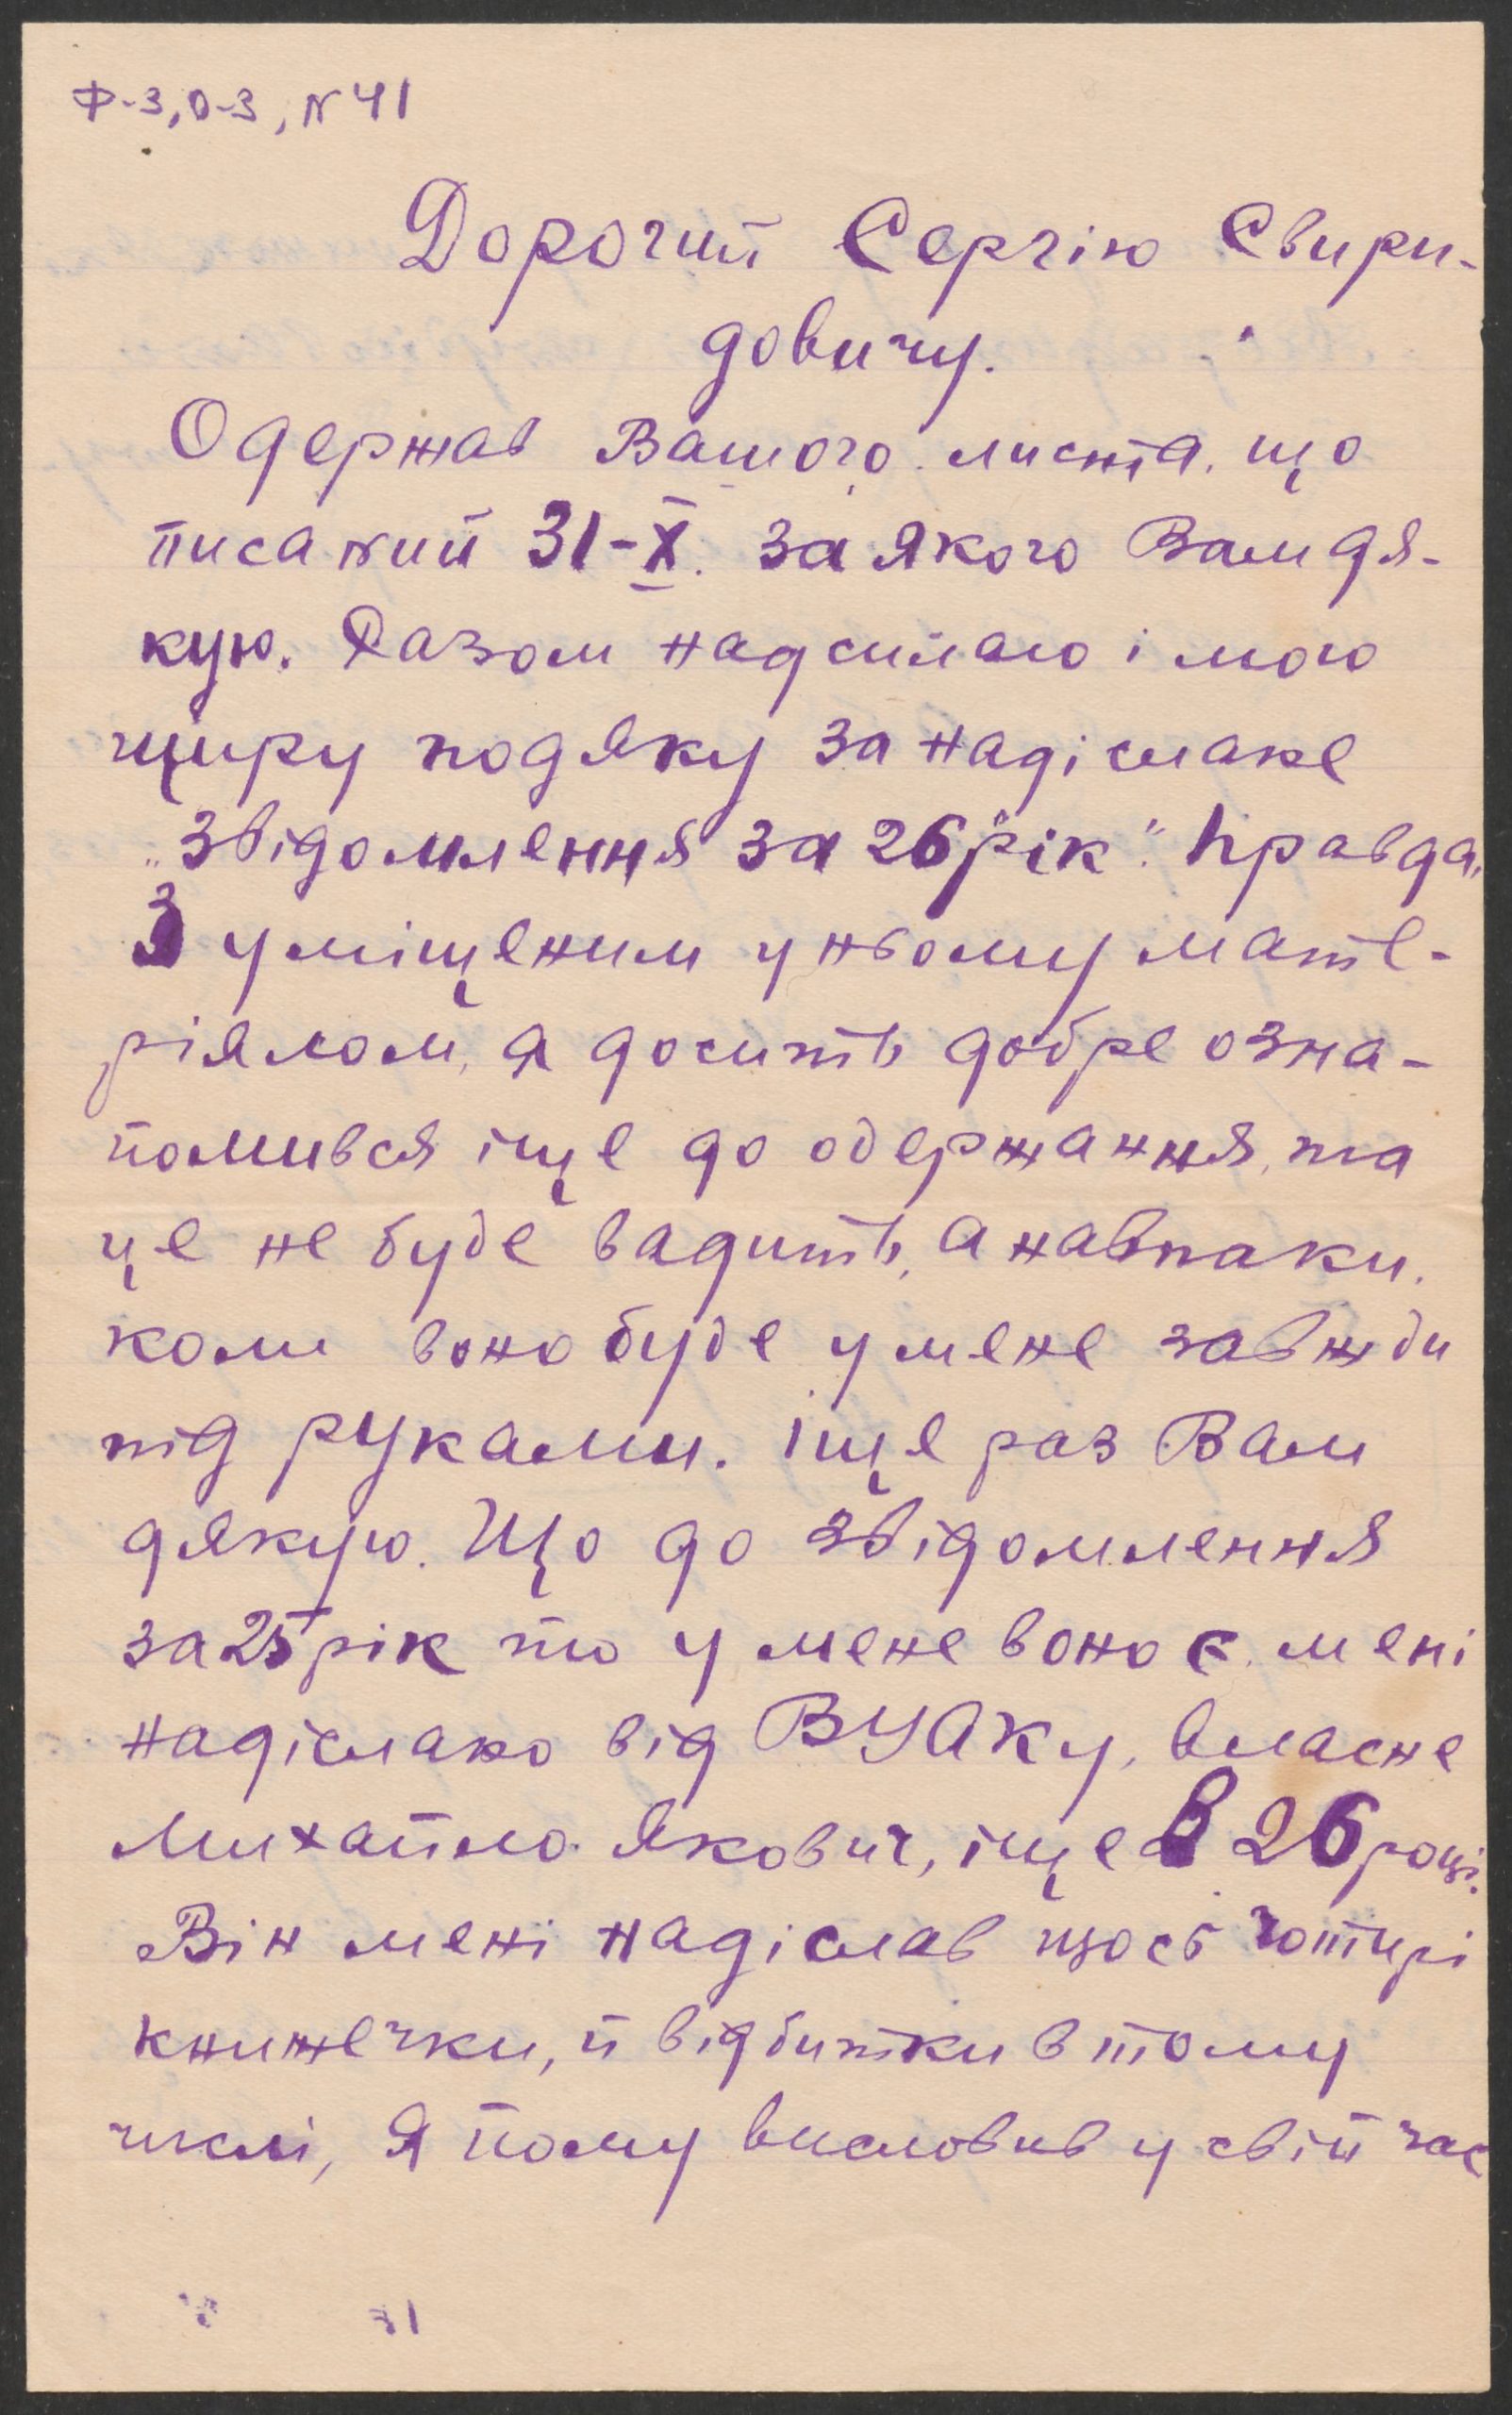 Ф-3, О-3, N 41
Дорогий Сергію Свири-
довичу.
Одержав Вашого листа, що
писаний 31-X. за якого Вам дя-
кую. Разом надсилаю і мою
щиру подяку за надіслане
„Звідомлення за 26 рік". Правда,
З уміщеним у ньому мате-
ріялом, я досить добре озна-
йомився іще до одержання, та
це не буде вадить, а навпаки,
коли воно буде у мене завжди
під руками. Іще раз Вам
дякую. Що до звідомлення
за 25 рік то у мене воно є, мені
надіслано від ВУАКу, власне
Михайло Якович, іще в 26 році.
Він мені надіслав щось чотирі
книжечки, й відбитки в тому
числі, Я йому висловив у свій час